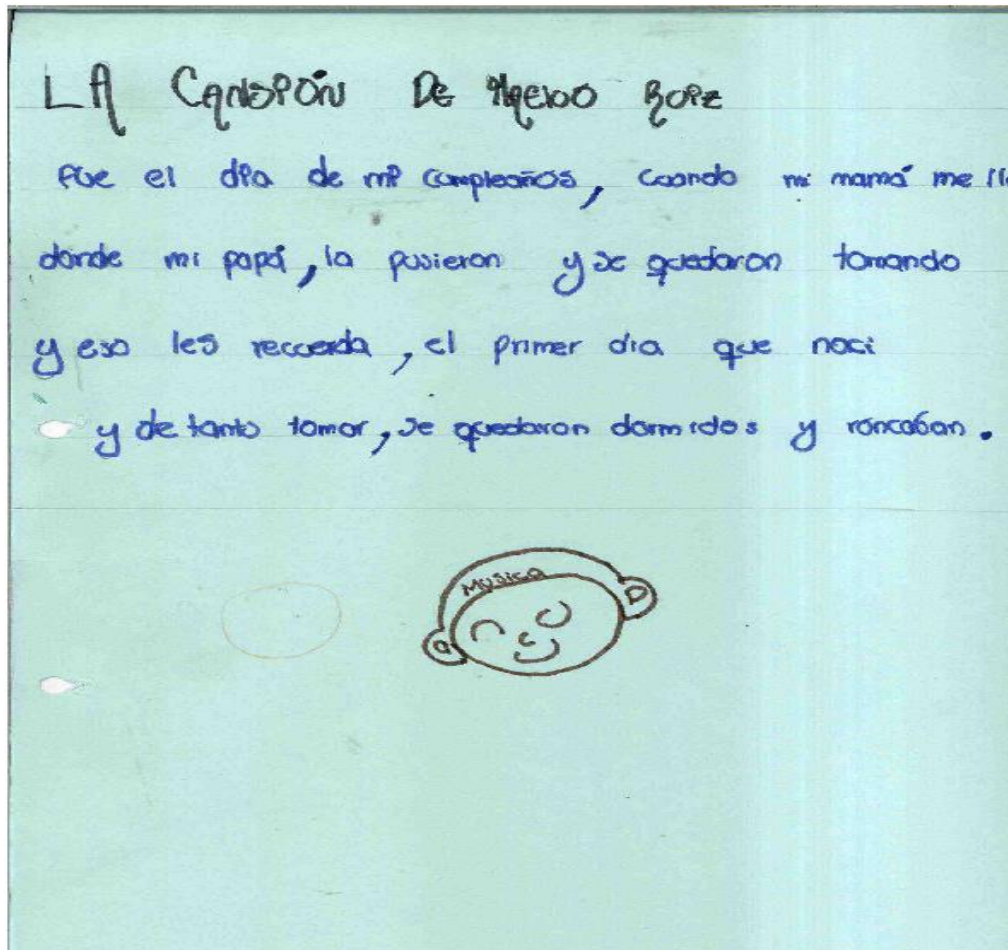 LA CANSIÓN DE RUIZ
fue el día de mi cumpleaños, cuando mi mamá me
donde mi papá, la pusieron y se quedaron tomando
y eso les recuerda, el primer dia que naci
y de tanto tomar, se quedaron dormidos y roncaban.
MUSICA